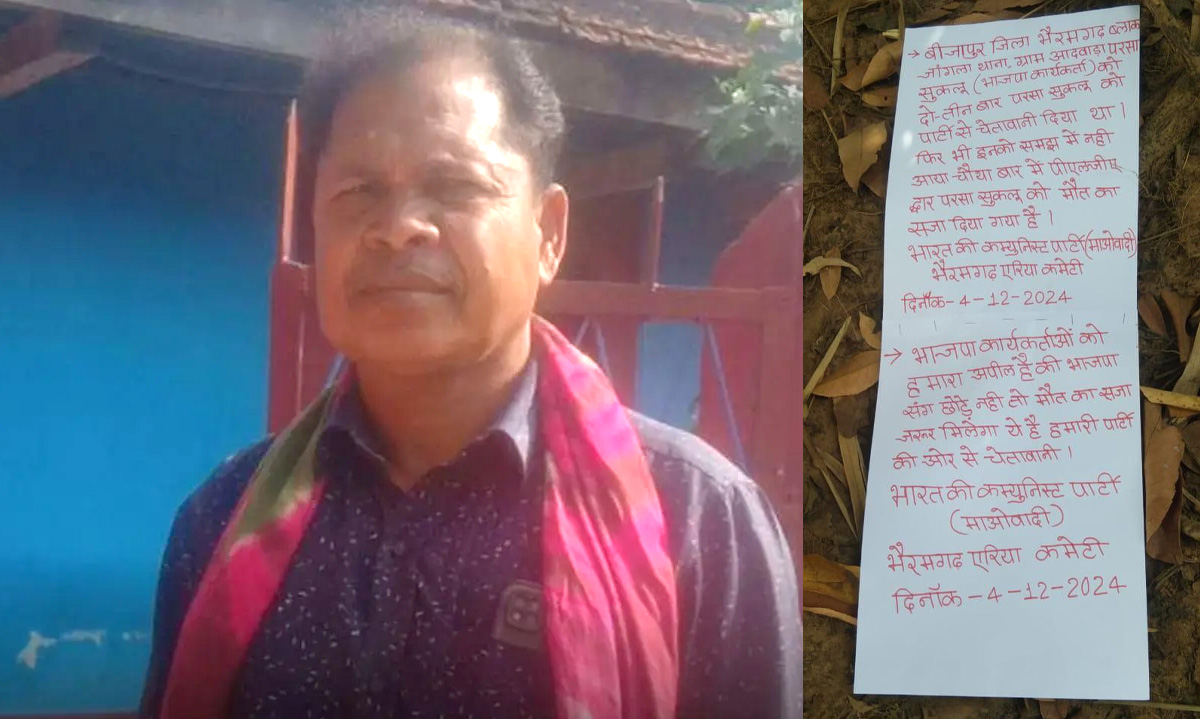 → बीजापुर जिला भैरमगढ़ ब्लाक
जांगला थाना, ग्राम आदवाड़ा परसा
सुकलू (भाजपा कार्यकर्ता) को
दो-तीन बार परसा सुकलू को
पार्टी से चेतावानी दिया था।
फिर भी इनको समझ में नही
आया-चौथा बार में पीएलजीए
द्वार परसा सुकलू को मौत का
सजा दिया गया है।
भारत की कम्युनिस्ट पार्टी (माओवादी)
भैरमगढ़ एरिया कमेटी
दिनाँक-4-12-2024
→ भाजपा कार्यकर्ताओं को
हमारा अपील है की भाजपा
संग छोड़े नही तो मौत का सजा
जरुर मिलेगा ये है हमारी पार्टी
की ओर से चेतावानी।
भारत की कम्युनिस्ट पार्टी
(माओवादी)
भैरमगढ़ एरिया कमेटी
दिनाँक-4-12-2024